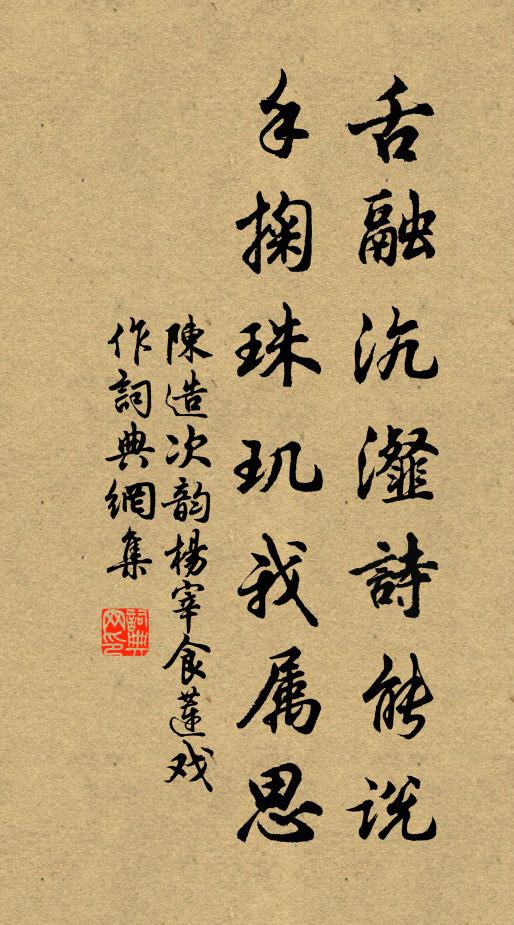 舌融沆瀣詩能说
手掬珠玑我属思
陳造次韵楊宰食蓮戏
作詞典網集
詞典网印